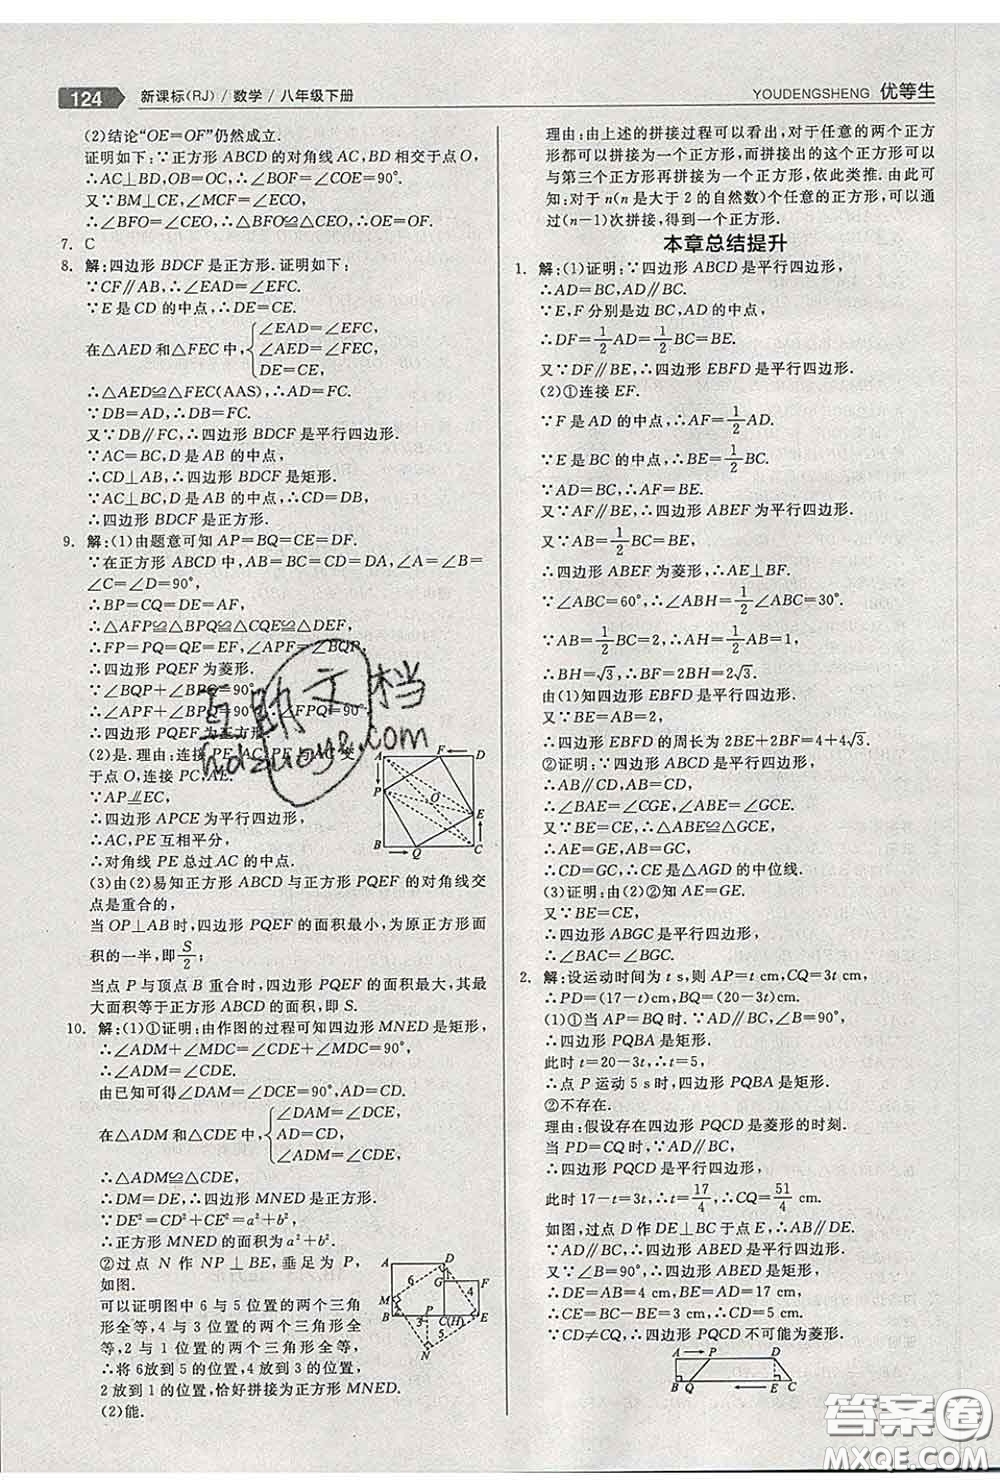 124 新课标(RJ)/数学/八年级下册
YOUDENGSHENG 优等生
(2)结论“OE=OF”仍然成立.
证明如下:∵正方形 ABCD 的对角线 AC,BD相交于点 O,
∴AC⊥BD,OB=OC,∴∠BOF=∠COE=90°.
又∵BM⊥CE,∴∠MCF=∠ECO,
∴∠BFO=∠CEO,∴△BFO≌△CEO,∴OE=OF.
7. C
8. 解:四边形 BDCF 是正方形.证明如下:
∵CF∥AB,∴∠EAD=∠EFC.
∵E 是 CD 的中点,∴DE=CE.
在△AED 和△FEC 中,{∠EAD=∠EFC,
∠AED=∠FEC,
DE=CE,
∴△AED≌△FEC(AAS),∴AD=FC.
∵DB=AD,∴DB=FC.
又∵DB∥FC,∴四边形 BDCF 是平行四边形.
∵AC=BC,D 是 AB 的中点,
∴CD⊥AB,∴四边形 BDCF 是矩形.
又∵AC⊥BC,D 是 AB 的中点,∴CD=DB,
∴四边形 BDCF 是正方形.
9. 解:(1)由题意可知 AP=BQ=CE=DF.
∵在正方形 ABCD 中,AB=BC=CD=DA,∠A=∠B=
∠C=∠D=90°,
∴BP=CQ=DE=AF,
∴△AFP≌△BPQ≌△CQE≌△DEF,
∴FP=PQ=QE=EF,∠APF=∠BQP,
∴四边形 PQEF 为菱形.
∵∠BQP+∠BPQ=90°,
∴∠APF+∠BPQ=90°,∴∠FPQ=90°,
∴四边形 PQEF 为正方形.
(2)是.理由:连接 PE,AC,PE,AC 交
于点 O,连接 PC,AE.
∵AP∥EC,
∴四边形 APCE 为平行四边形,
∴AC,PE 互相平分,
∴对角线 PE 总过 AC 的中点.
(3)由(2)易知正方形 ABCD 与正方形 PQEF 的对角线交
点是重合的,
当 OP⊥AB 时,四边形 PQEF 的面积最小,为原正方形面
积的一半,即S/2;
当点 P 与顶点 B 重合时,四边形 PQEF 的面积最大,其最
大面积等于正方形 ABCD 的面积,即 S.
10. 解:(1)①证明:由作图的过程可知四边形 MNED 是矩形,
∴∠ADM+∠MDC=∠CDE+∠MDC=90°,
∴∠ADM=∠CDE.
由已知可得∠DAM=∠DCE=90°,AD=CD.
在△ADM 和△CDE 中,{∠DAM=∠DCE,
AD=CD,
∠ADM=∠CDE,
∴△ADM≌△CDE,
∴DM=DE,∴四边形 MNED 是正方形.
∵DE²=CD²+CE²=a²+b²,
∴正方形 MNED 的面积为 a²+b².
②过点 N 作 NP⊥BE,垂足为 P,
如图.
可以证明图中 6 与 5 位置的两个三角
形全等,4 与 3 位置的两个三角形全
等,2 与 1 位置的两个三角形也全等.
∴将 6放到 5 的位置,4放到 3 的位置,
2 放到 1 的位置,恰好拼接为正方形 MNED.
(2)能.
理由:由上述的拼接过程可以看出,对于任意的两个正方
形都可以拼接为一个正方形,而拼接出的这个正方形可以
与第三个正方形再拼接为一个正方形,依此类推.由此可
知:对于 n(n 是大于 2 的自然数)个任意的正方形,可以通
过(n-1)次拼接,得到一个正方形.
本章总结提升
1. 解:(1)证明:∵四边形 ABCD 是平行四边形,
∴AD=BC,AD∥BC.
∵E,F 分别是边 BC,AD 的中点,
∴DF=1/2AD=1/2BC=BE.
又∵DF∥BE,∴四边形 EBFD 是平行四边形.
(2)①连接 EF.
∵F 是 AD 的中点,∴AF=1/2AD.
∵E 是 BC 的中点,∴BE=1/2BC.
∵AD=BC,∴AF=BE.
又∵AF∥BE,∴四边形 ABEF 为平行四边形.
又∵AB=1/2BC=BE,
∴四边形 ABEF 为菱形,∴AE⊥BF.
∵∠ABC=60°,∴∠ABH=1/2∠ABC=30°.
∵AB=1/2BC=2,∴AH=1/2AB=1,
∴BH=√3,∴BF=2BH=2√3.
由(1)知四边形 EBFD 是平行四边形.
又∵
∴四边形 EBFD 的周长为 2BE+2BF=4+4√3.
②证明:∵四边形 ABCD 是平行四边形,
∴AB∥CD,AB=CD,
∴∠BAE=∠CGE,∠ABE=∠GCE.
又∵BE=CE,∴△ABE≌△GCE,
∴AE=GE,AB=GC,
∴CD=GC,∴CE 是△AGD 的中位线.
(3)证明:由(2)②知 AE=GE.
又∵BE=CE,
∴四边形 ABGC 是平行四边形,
∴∠BAC=∠BGC.
2. 解:设运动时间为 t s,则 AP=t cm,CQ=3t cm,
∴PD=(17-t)cm,BQ=(20-3t)cm.
(1)①当 AP=BQ 时.∵∠B=90°,AD∥BC,
∴四边形 PQBA 是矩形.
此时 t=20-3t,∴t=5,
∴点 P 运动 5 s时,四边形 PQBA 是矩形.
②不存在.
理由:假设存在四边形 PQCD 是菱形的时刻.
当 PD=CQ 时,∵AD∥BC,
∴四边形 PQCD 是平行四边形,
此时 17-t=3t,∴t=17/4,∴CQ=51/4 cm.
如图,过点 D 作 DE⊥BC 于点 E,∴AB∥DE.
∵AD∥BC,∴四边形 ABED 是平行四边形.
又∵∠B=90°,∴四边形 ABED 是矩形,
∴DE=AB=8 cm,BE=AD=17 cm,
∴CE=BC-BE=3 cm,∴CD=√73 cm.
∵CD≠CQ,∴四边形 PQCD 不可能为菱形.
互助文档
hdzuoye.com
答案圈
MXQE.COM